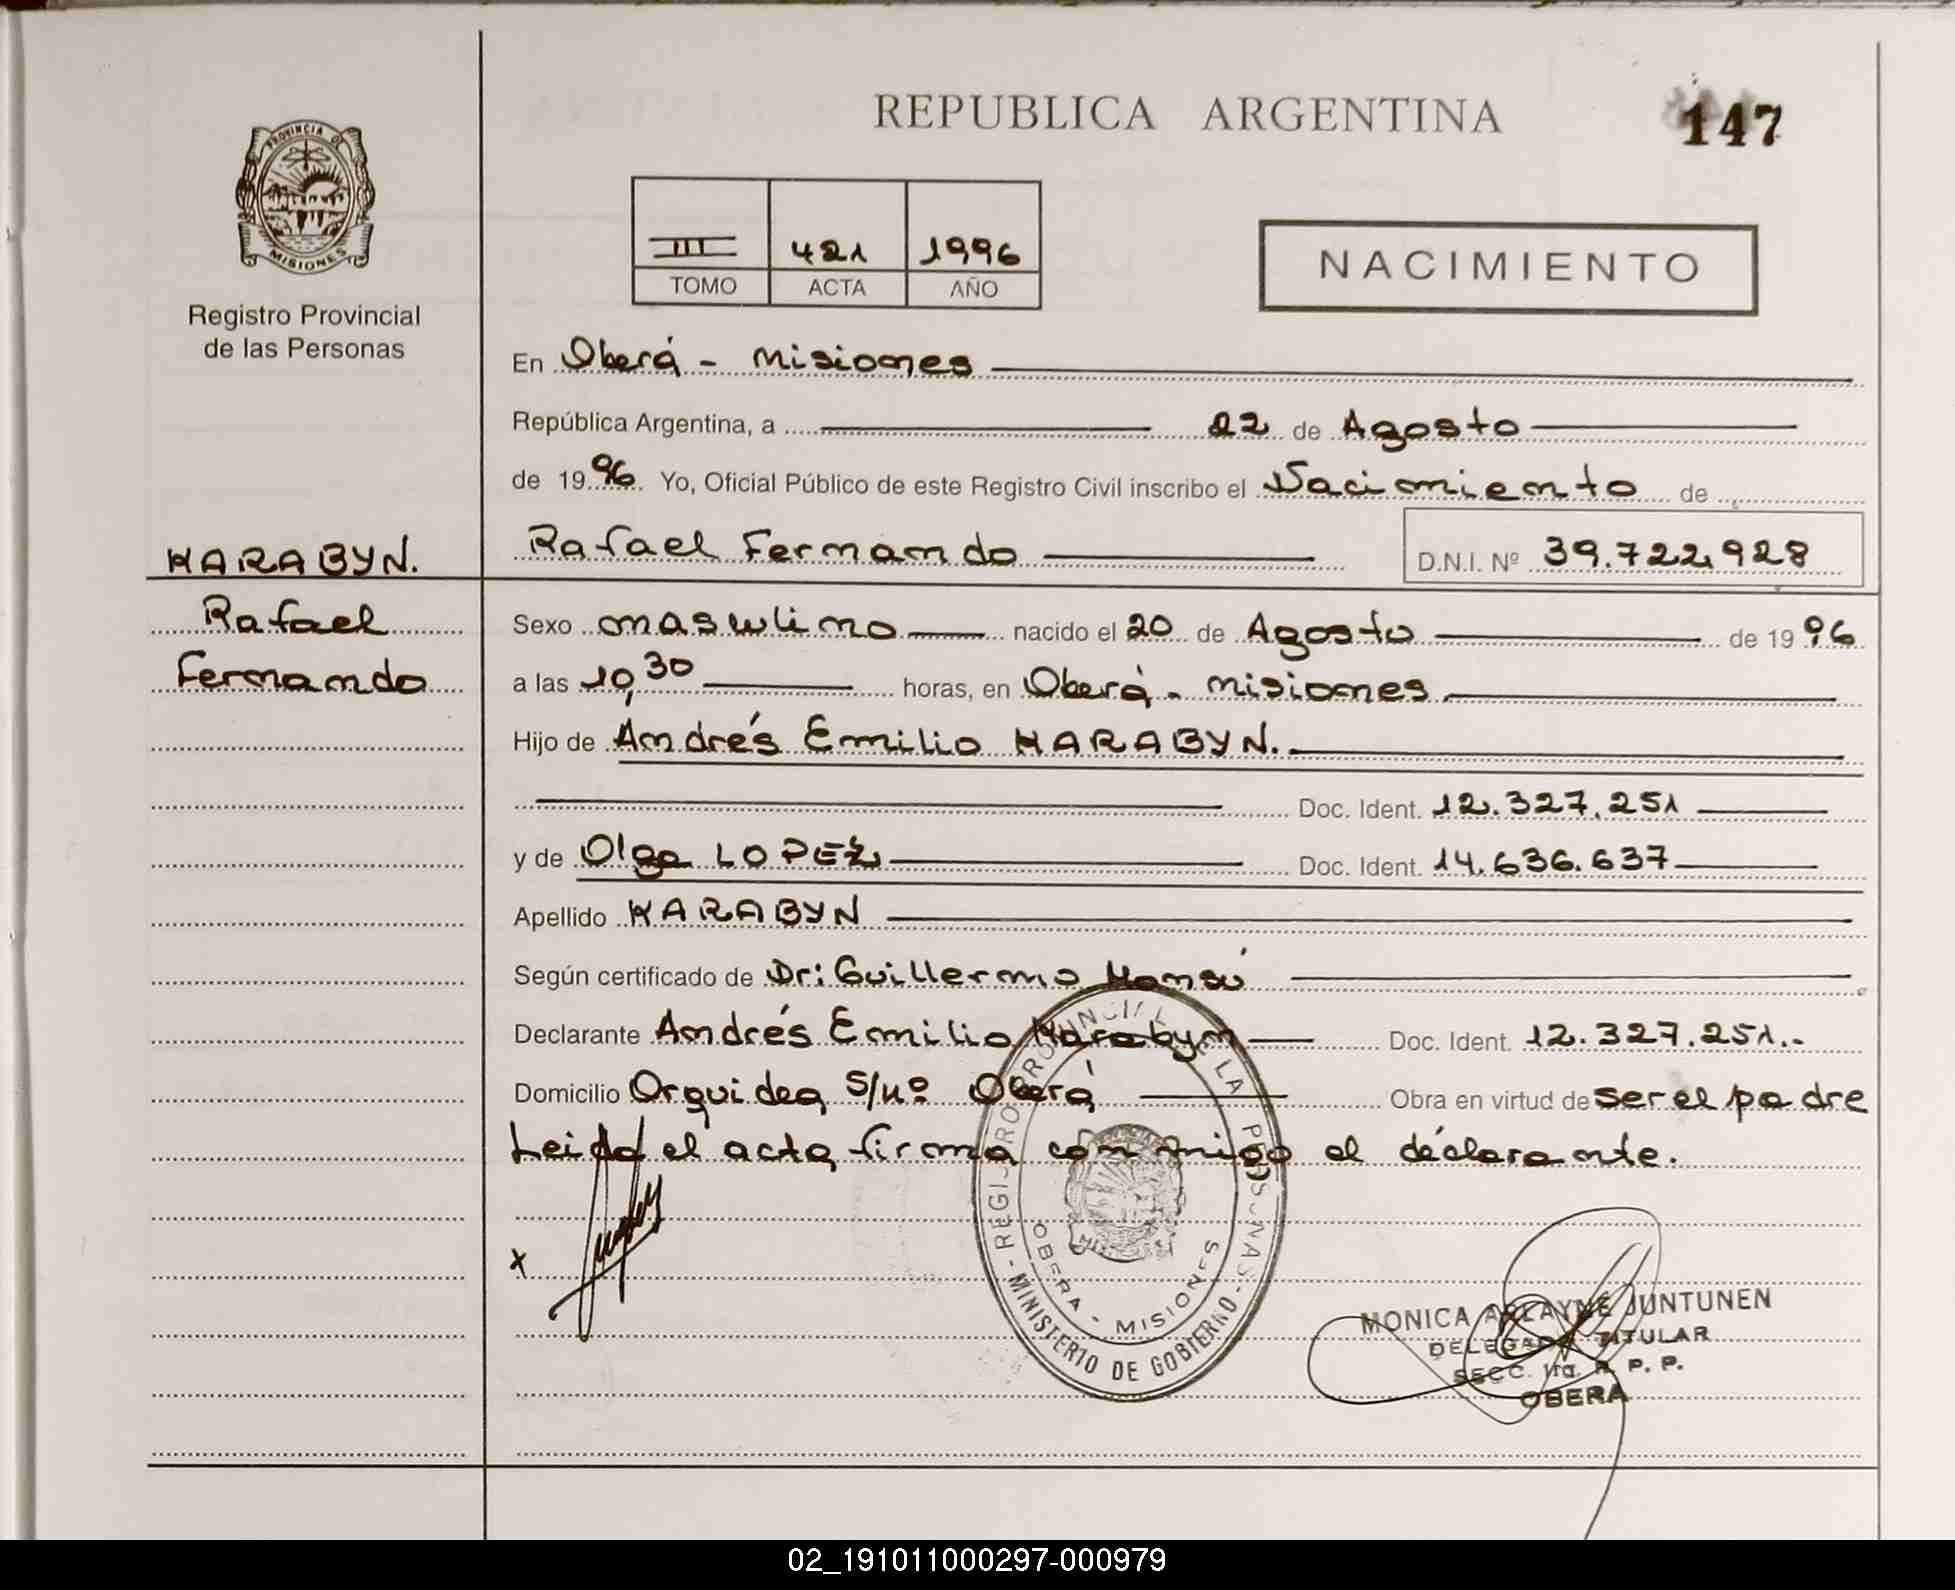 REPUBLICA ARGENTINA
147
PROVINCIA DE
MISIONES
Registro Provincial
de las Personas
III 421 1996
TOMO ACTA AÑO
NACIMIENTO
En Oberá - Misiones
República Argentina, a 22 de Agosto
de 1996 Yo, Oficial Público de este Registro Civil inscribo el Nacimiento de
KARABYN.
Rafael Fernando D.N.I. Nº 39.722.928
Rafael
Fernando
Sexo masculino nacido el 20 de Agosto de 1996
a las 10,30 horas, en Oberá - Misiones
Hijo de Andrés Emilio KARABYN.
Doc. Ident. 12.327.251
y de Olga LOPEZ Doc. Ident. 14.636.637
Apellido KARABYN
Según certificado de Dr: Guillermo
Declarante Andrés Emilio Karabyn Doc. Ident. 12.327.251.-
Domicilio Orquidea S/nº Oberá Obra en virtud de ser el padre
Leida el acta firma conmigo el declarante.
x
REGISTRO PROVINCIAL DE LAS PERSONAS - MINISTERIO DE GOBIERNO -
OBERA - MISIONES
MONICA ARLAYNE JUNTUNEN
DELEGADA TITULAR
SECC. 1ra. R. P. P.
OBERA
02_191011000297-000979